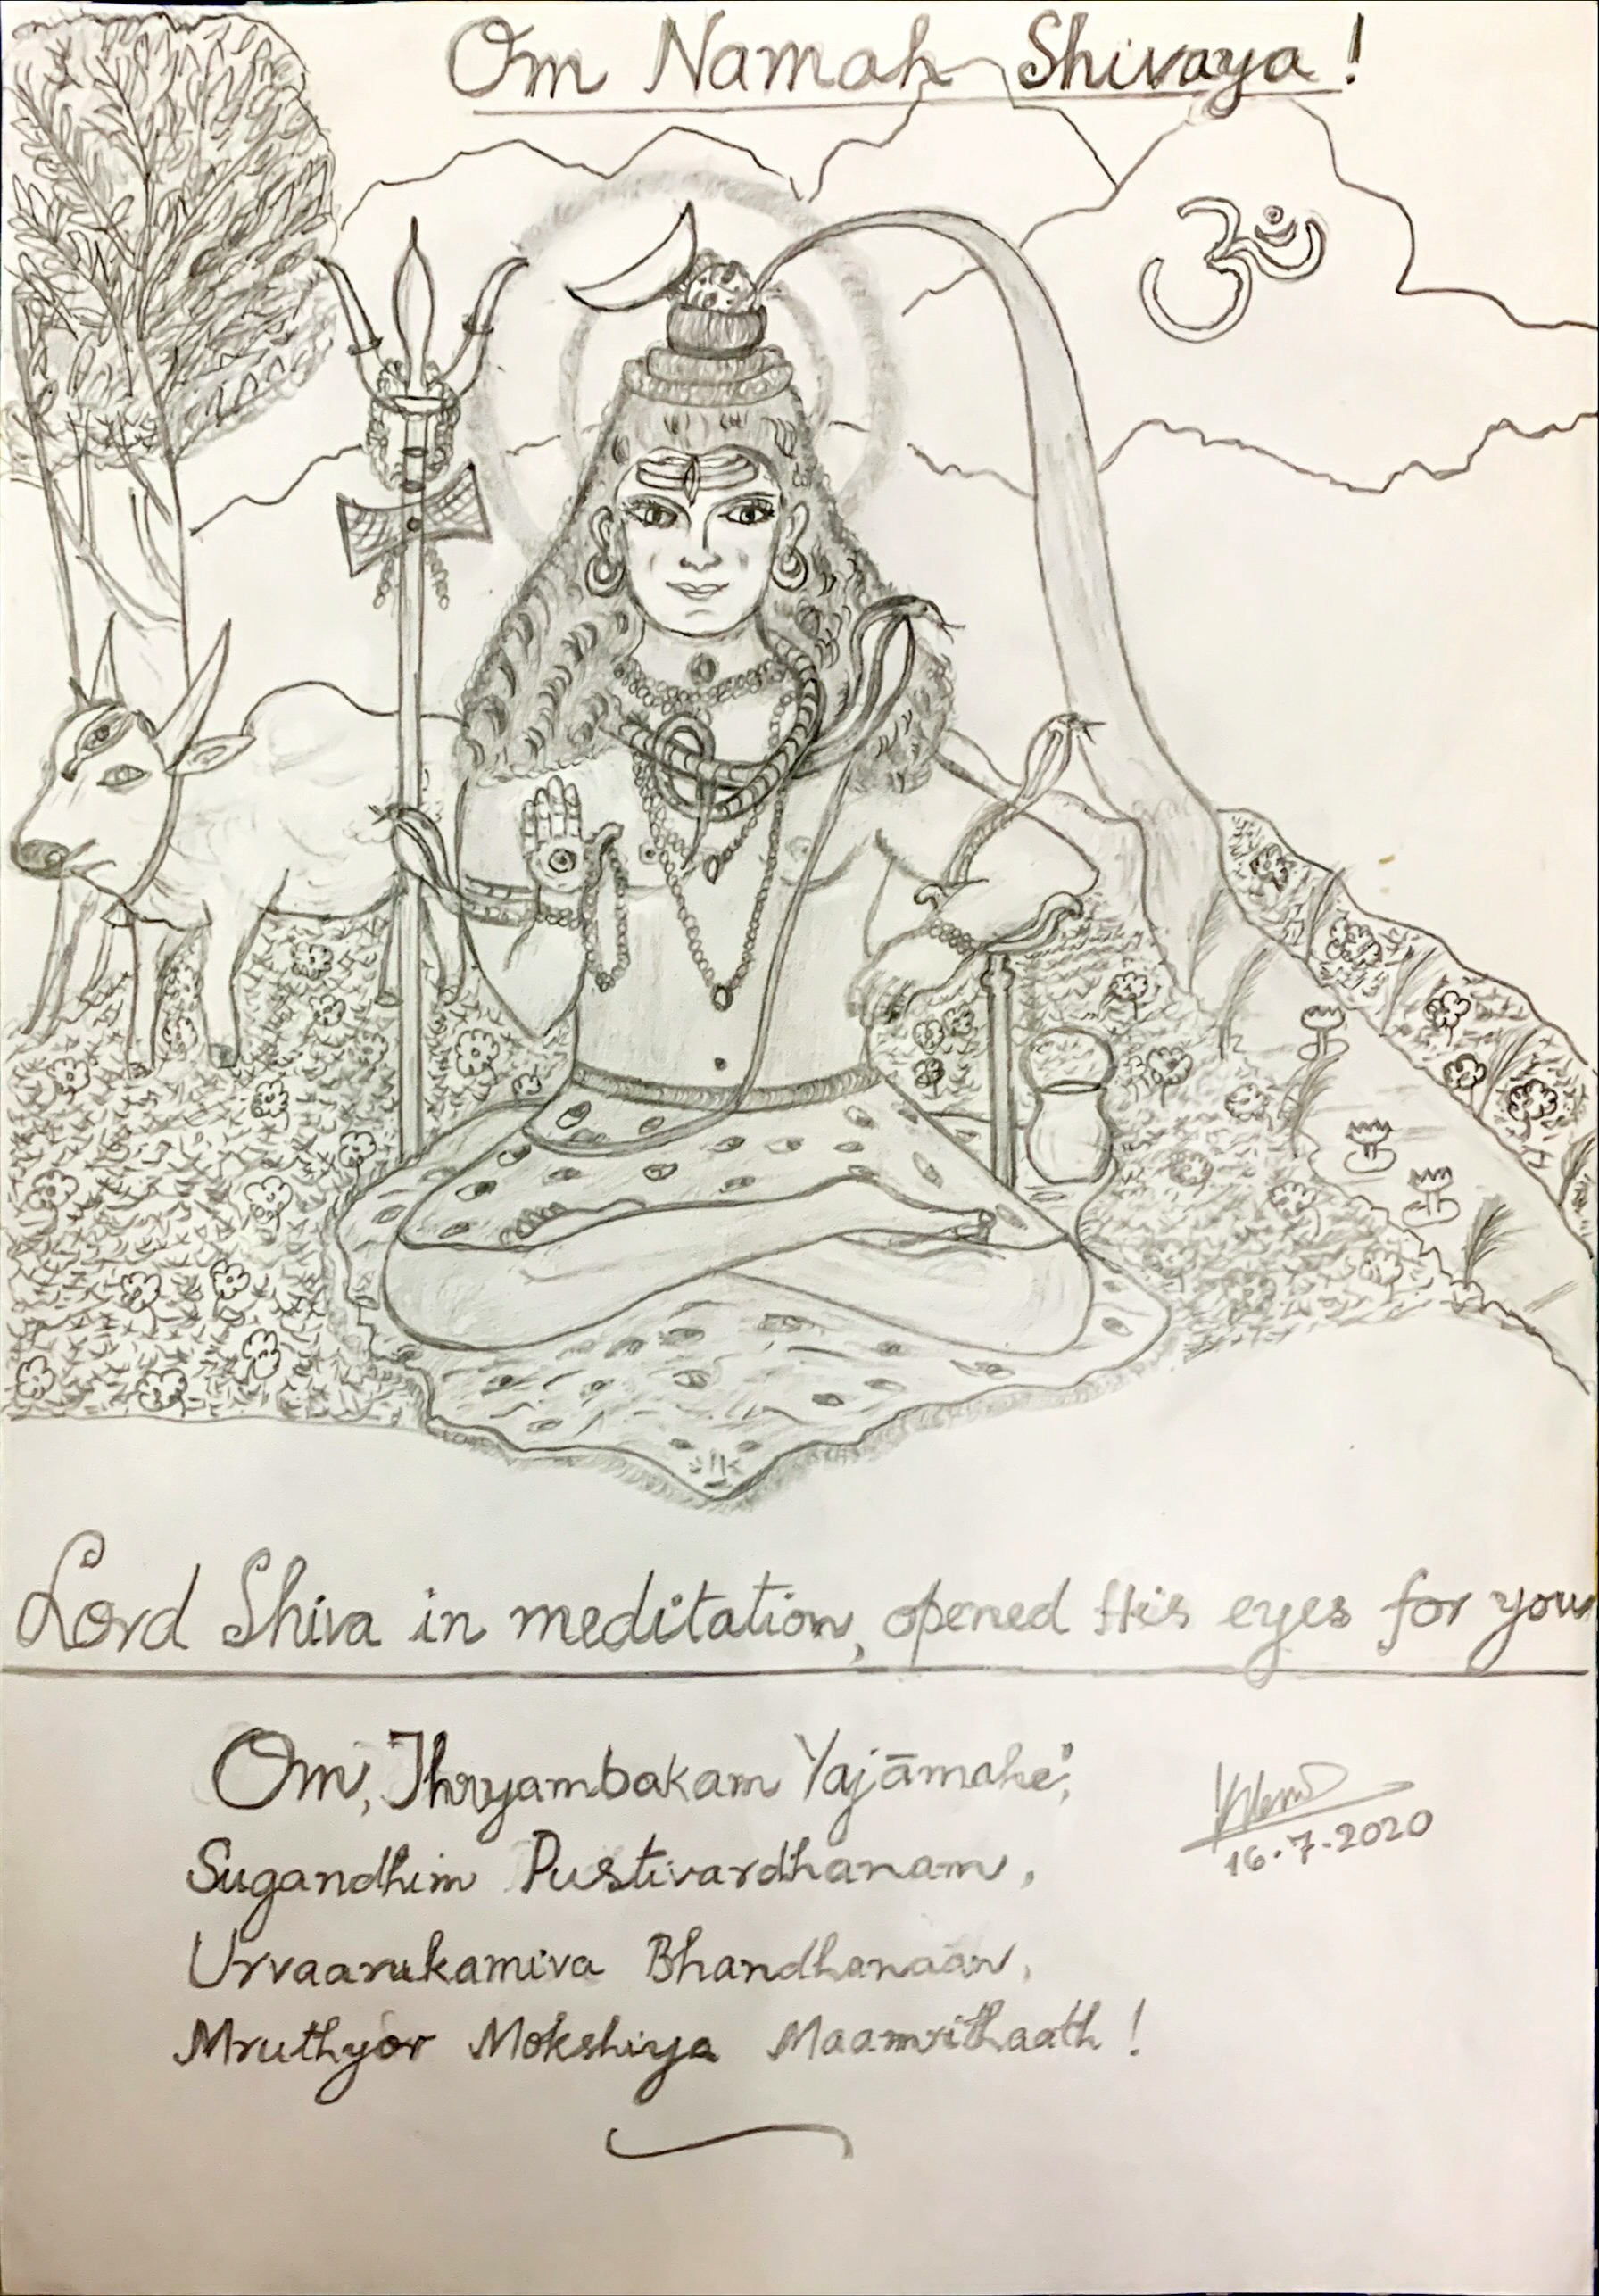 Om Namah Shivaya!
ॐ
Lord Shiva in meditation, opened His eyes for you
Om, Thryambakam Yajāmahe,
Sugandhim Pustivardhanam,
Urvaarukamiva Bhandhanaan,
Mruthyor Mokshiya Maamrithaath!
16.7.2020